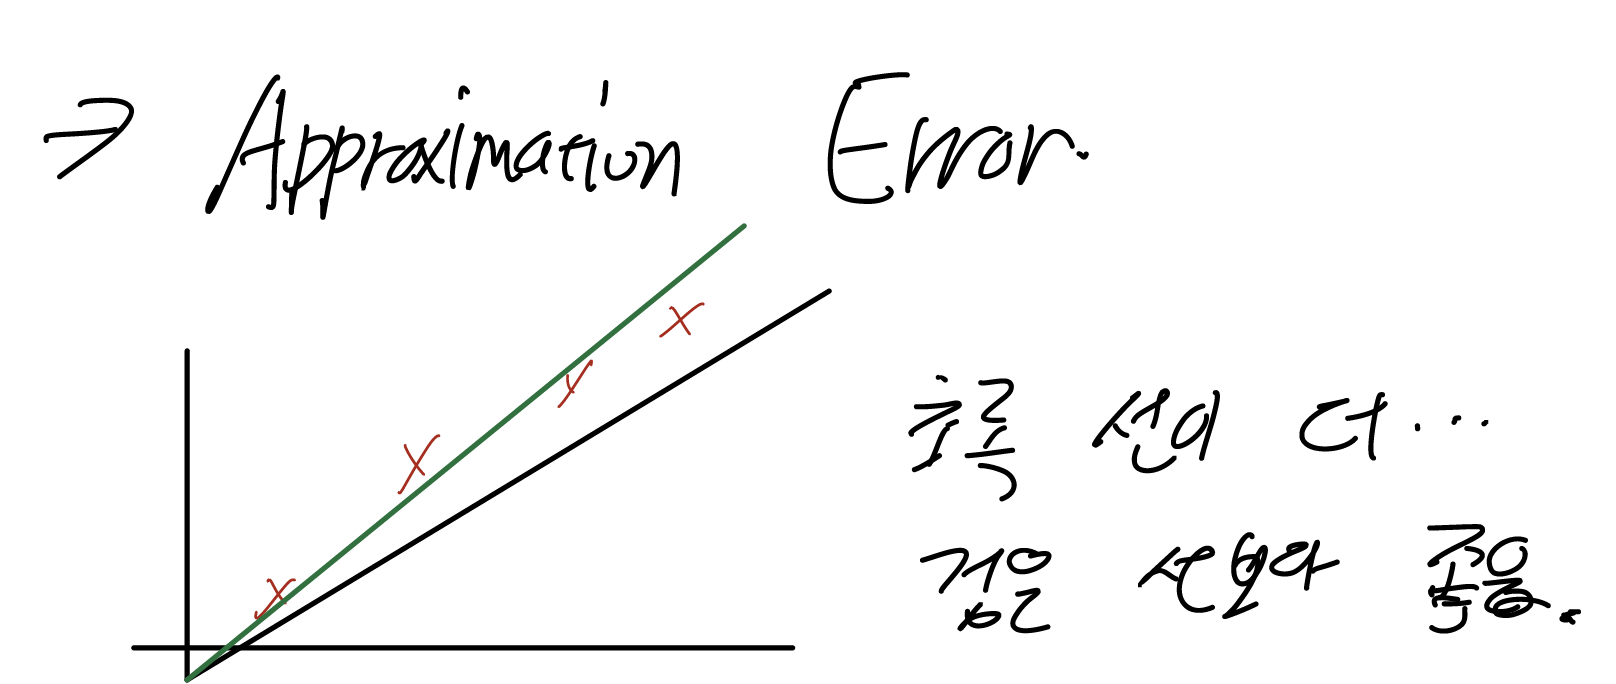 → Approximation Error.
초록 선이 더...
검은 선보다 좋음.